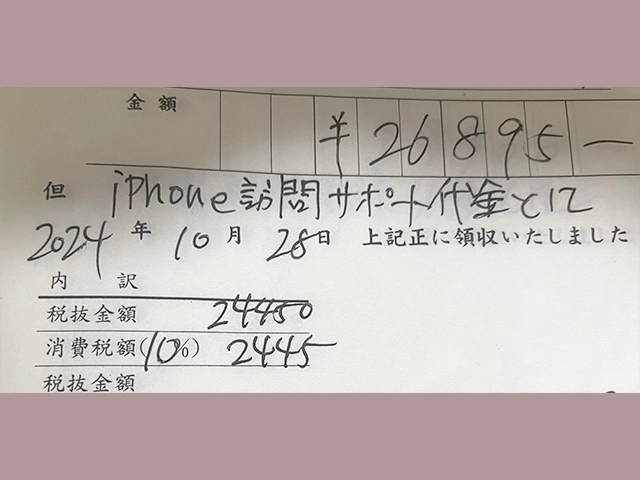 金額 ¥26895―
但 iPhone訪問サポート代金として
2024年10月28日 上記正に領収いたしました
内訳
税抜金額 24450
消費税額(10%) 2445
税抜金額